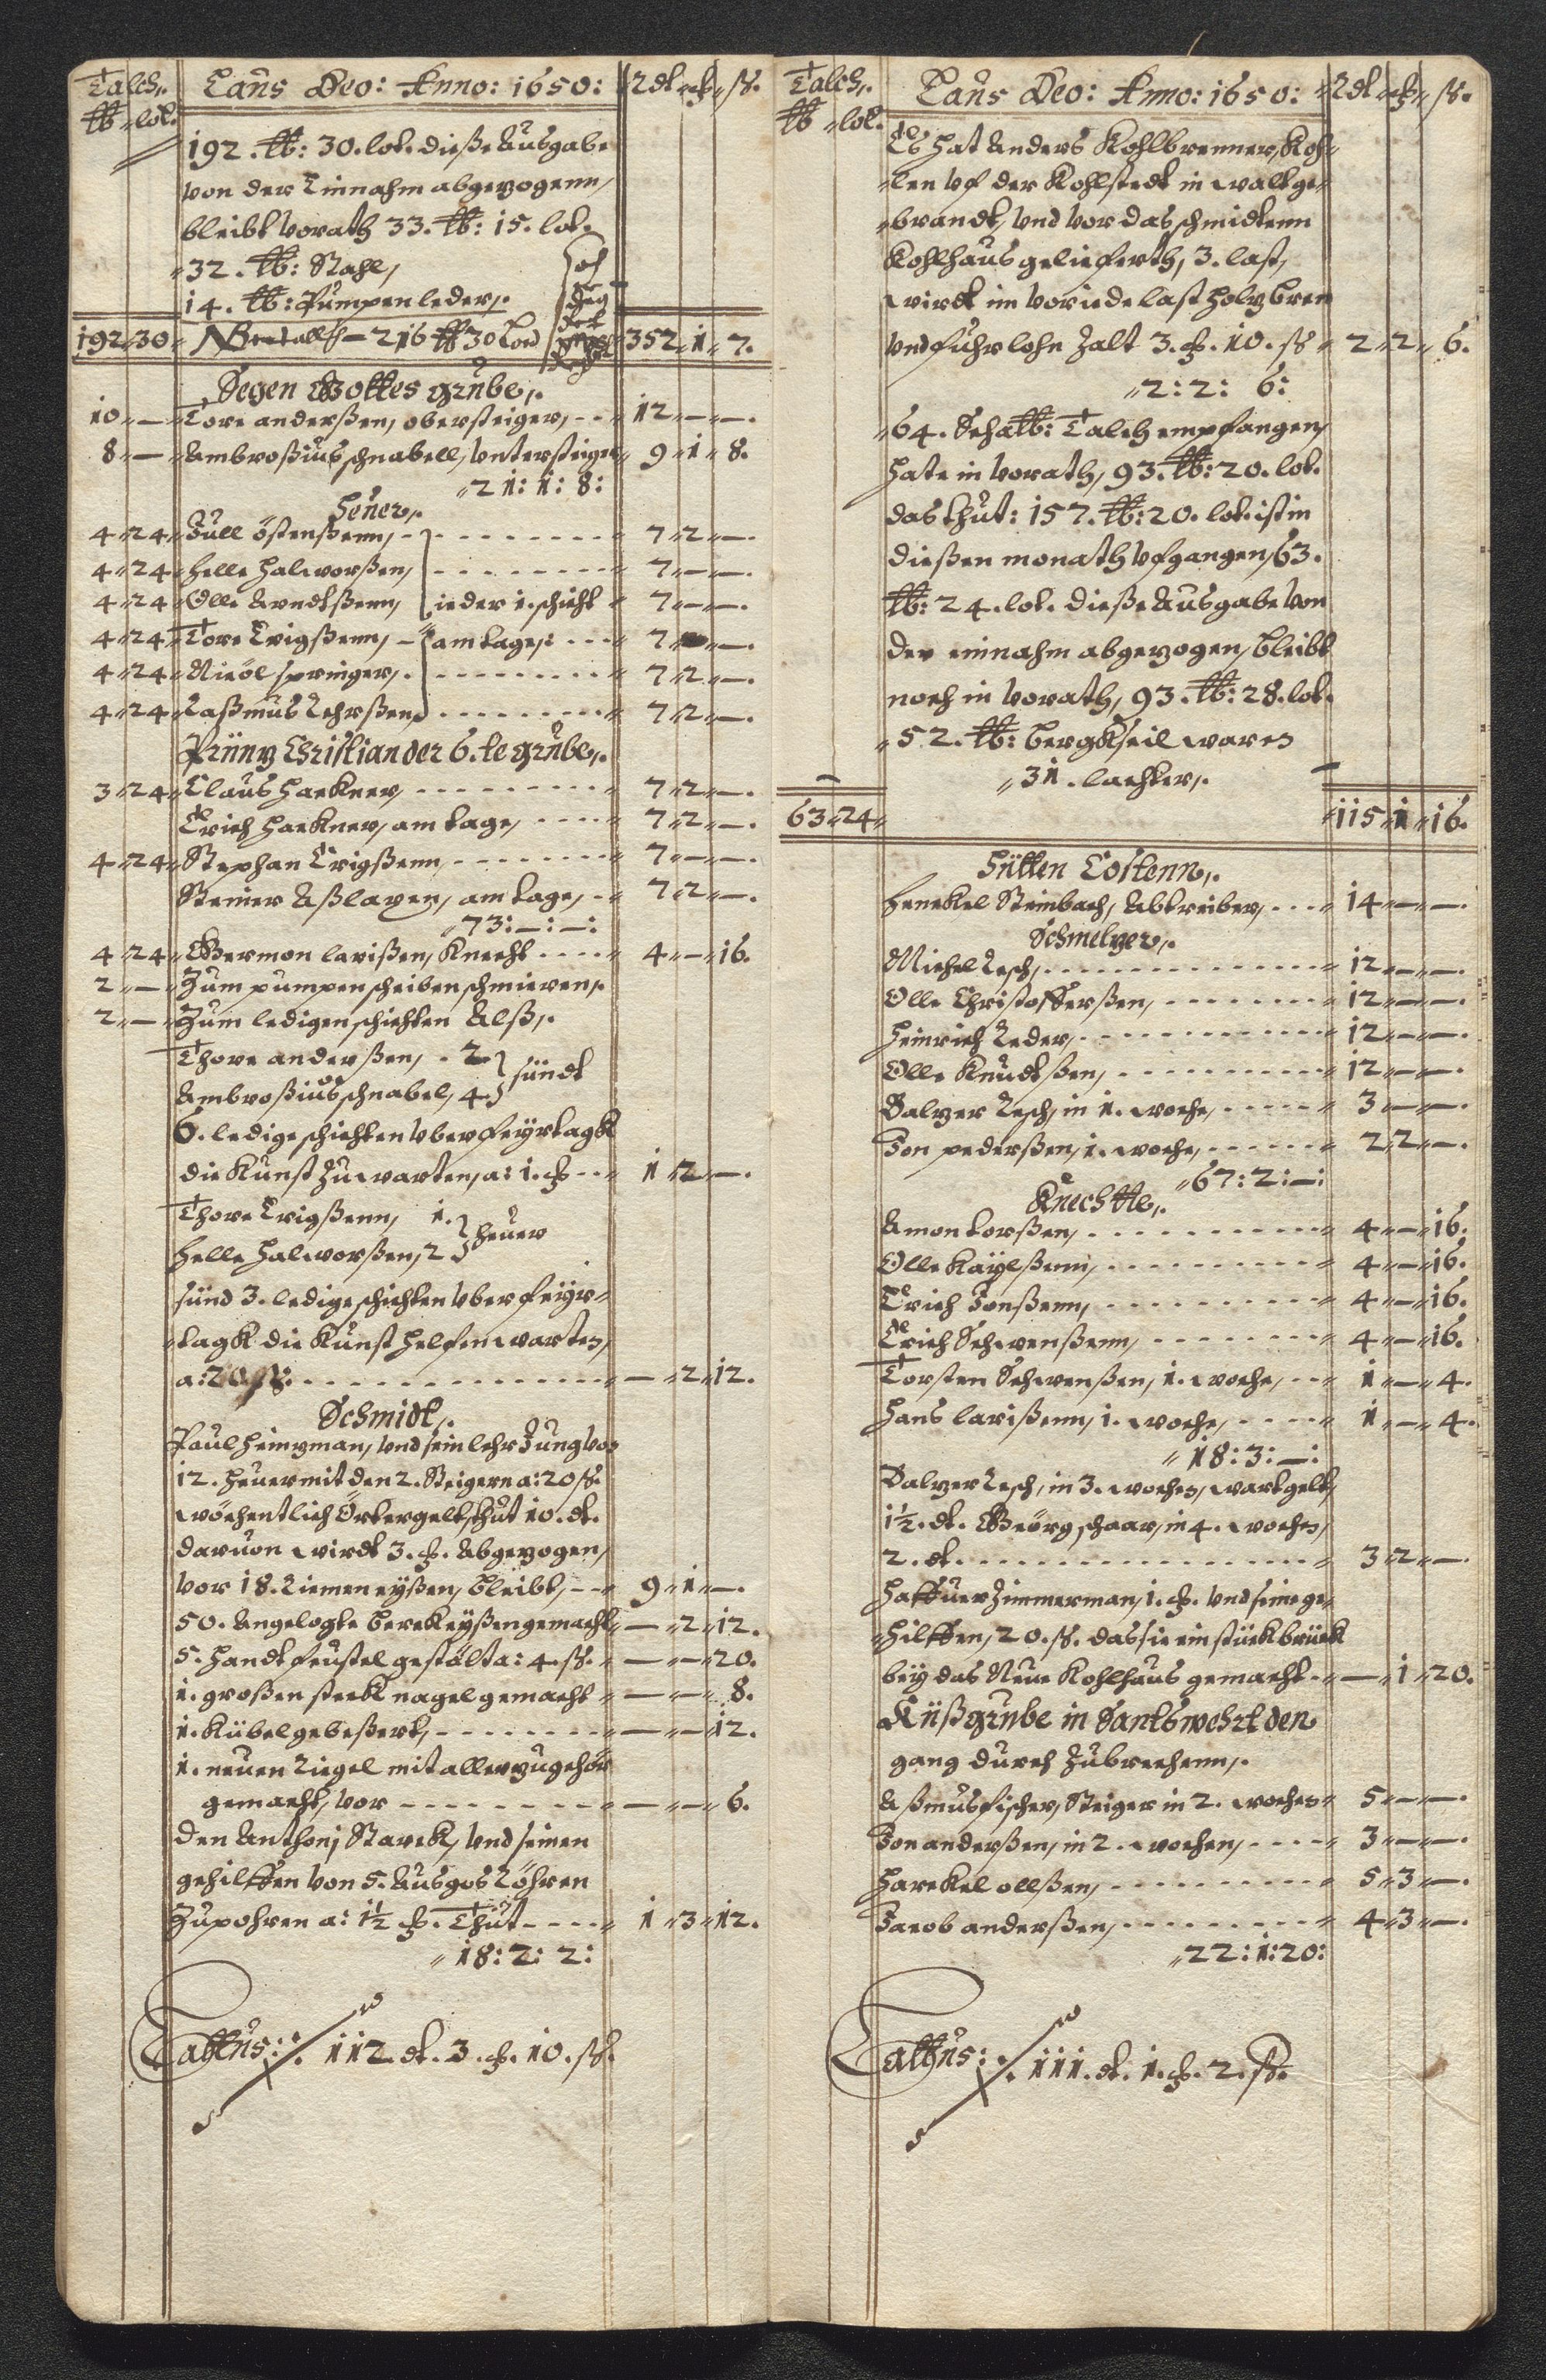 Talch,.
Laus Deo: Anno: 1650:
Rdt ₰ ß.
℔ lot.
192. ℔: 30. lot. dieße Ausgabe
von der Einnahm abgezogenn,
bleibt vorath 33. ℔: 15. lot.
32. ℔: Stahl,
14. ℔: Pumpenleder,.
192 30 216 ℔ 30 352 1 7.
Segen Gottes grube,.
10 — Tore anderßen, obersteiger, 12 — —.
8 — Ambroßius schnabell, Untersteiger 9 1 8.
21: 1: 8:
Heuer,.
4 24 Jull östenßenn, 7 2 —.
4 24 Helle Halvorßen, 7 — —.
4 24 Olle Arndtßenn, ieder 1. schicht 7 — —.
4 24 Tore Erigßenn, am tage,: 7 — —.
4 24 Nicol springer, 7 2 —.
4 24 Raßmus Lehrßen, 7 2 —.
Printz Christian der 6. te grube,.
3 24 Claus Hackner, 7 2 —.
Erich Hackner, am tage, 7 2 —.
4 24 Stephan Erigßenn, 7 — —.
Steiner Aßlaxen, am tage, 7 2 —.
73: —: —:
4 24 Germon larißen, Knecht 4 — 16.
2 — Zum pumpen scheiben schmieren,.
2 — Zum ledigen schichten Alß,.
Thore anderßen, 2
Ambroßius schnabel, 4 sündt
6. ledige schichten Uber feyrtagk
die Kunst zu warten, a: 1. ₰ 1 2 —.
Thore Erigßenn, 1.
Helle Halvorßen, 2 heuer
sünd 3. ledige schichten Uber feyr-
tagk die Kunst helffen warten,
a: 20 ß: — 2 12.
Schmidt,.
Paul Heinzman, Und sein lehr Jung von
12. heuer mit den 2. Steigern a: 20 ß.
wöchentlich Örtergelt, thut 10. dt.
daruon wirdt 3. ₰. Abgezogen,
vor 18. Riemen eyßen, bleibt, 9 1 —.
50. Angelogte berckeyßen gemacht — 2 12.
5. handt feustel gestölt a: 4. ß. — — 20.
1. großen steck nagel gemacht — — 8.
1. Kübel gebeßert, — — 12.
1. neuen Riegel mit aller zugehör
gemacht, vor — — 6.
Den Anthonj Starck, Und seinen
gehilffen von 5. Ausgos Röhren
Zu pohren a: 1½ ₰. Thut 1 3 12.
18: 2: 2:
Lattus: 112. dt. 3. ₰. 10. ß.
Talch,.
Laus Deo: Anno: 1650:
Rdt ₰ ß.
℔ lot.
Es hat Anders Kohlbrenner, Koh-
len Uf der Kohlstedt in walt ge-
brandt, Und vor das schmidtenn
Kohlhaus geliefferth, 3. last,
wirdt im vor iede last holtz bren
Und fuhrlohn zalt 3. ₰. 10. ß 2 2 6.
2: 2: 6:
64. Scha ℔: Talch empfangen,
hate in vorath, 93. ℔: 20. lot.
das thut: 157. ℔: 20. lot. ist in
dießen monath Ufgangen, 63.
℔: 24. lot. dieße Ausgabe von
der einnahm abgezogen, bleibt
noch in vorath, 93. ℔: 28. lot.
52. ℔: bergkseil waren
31. lachter,.
63 24 115 1 16.
Hütten Costenn,.
Henckel Steinbach, Abtreiber, 14 — —.
Schmeltzer,.
Michel Resch, 12 — —.
Olle Christofferßen, 12 — —.
Heinrich Reder, 12 — —.
Olle Knudtßen, 12 — —.
Baltzer Resch, in 1. woche, 3 — —.
Jon pederßen, 1. woche, 2 2 —.
67: 2: —:
Knechtte,.
Amon torßen, 4 — 16.
Olle Kaylßenn, 4 — 16.
Erich Jonßenn, 4 — 16.
Erich Schwenßenn, 4 — 16.
Torsten Schwenßen, 1. woche, 1 — 4.
Hans larißenn, 1. woche, 1 — 4.
18: 3: —:
Baltzer Resch, in 3. wochen, wartgelt,
1½. dt. Geörg schaar, in 4. wochen,
2. dt. 3 2 —.
Haffuer Zimmerman, 1. ₰. Und seine ge-
hilffen, 20. ß. das sie ein stück brück
bey das Neue Kohlhaus gemacht — 1 20.
Küßgrube in Santswehrt den
gang durch zubrechenn,.
Aßmus fischer, Steiger in 2. wochen 5 — —.
Jon anderßen, in 2. wochen, 3 — —.
Harckel ollßen, 5 3 —.
Jacob anderßen, 4 3 —.
22: 1: 20:
Lattus: 111. dt. 1. ₰. 2. ß.